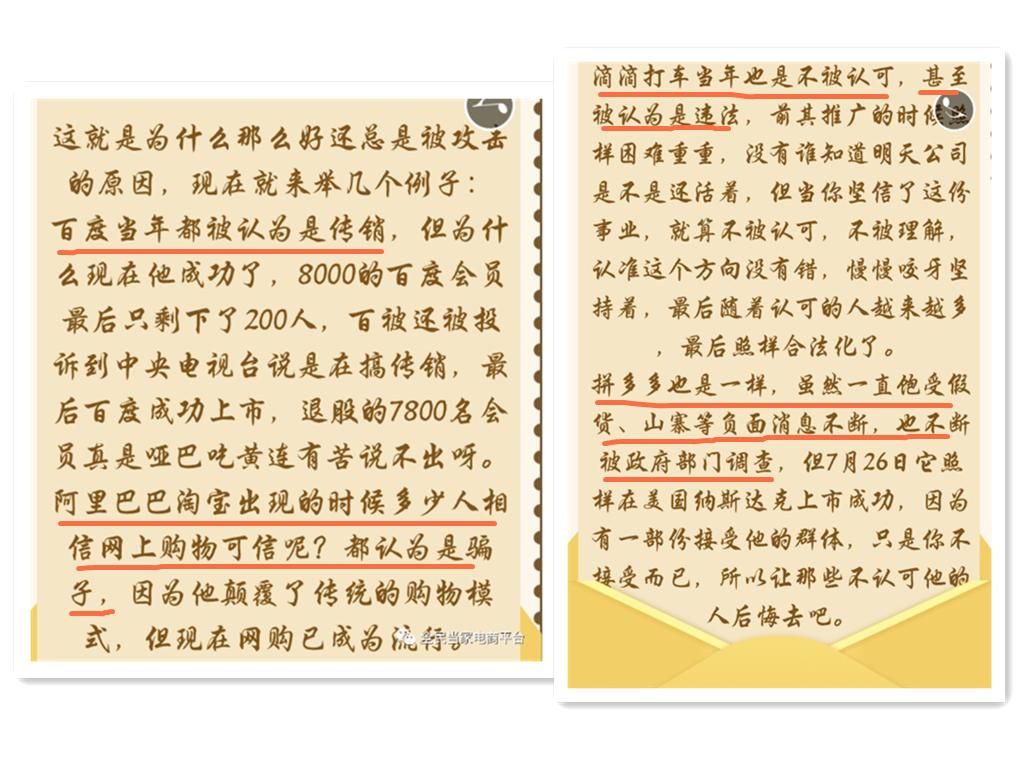 这就是为什么那么好还总是被攻击
的原因，现在就来举几个例子：
百度当年都被认为是传销，但为什
么现在他成功了，8000的百度会员
最后只剩下了200人，百被还被投
诉到中央电视台说是在搞传销，最
后百度成功上市，退股的7800名会
员真是哑巴吃黄连有苦说不出呀。
阿里巴巴淘宝出现的时候多少人相
信网上购物可信呢？都认为是骗
子，因为他颠覆了传统的购物模
式，但现在网购已成为流行。
全民当家电商平台
滴滴打车当年也是不被认可，甚至
被认为是违法，前其推广的时候照
样困难重重，没有谁知道明天公司
是不是还活着，但当你坚信了这份
事业，就算不被认可，不被理解，
认准这个方向没有错，慢慢咬牙坚
持着，最后随着认可的人越来越多
，最后照样合法化了。
拼多多也是一样，虽然一直饱受假
货、山寨等负面消息不断，也不断
被政府部门调查，但7月26日它照
样在美国纳斯达克上市成功，因为
有一部份接受他的群体，只是你不
接受而已，所以让那些不认可他的
人后悔去吧。